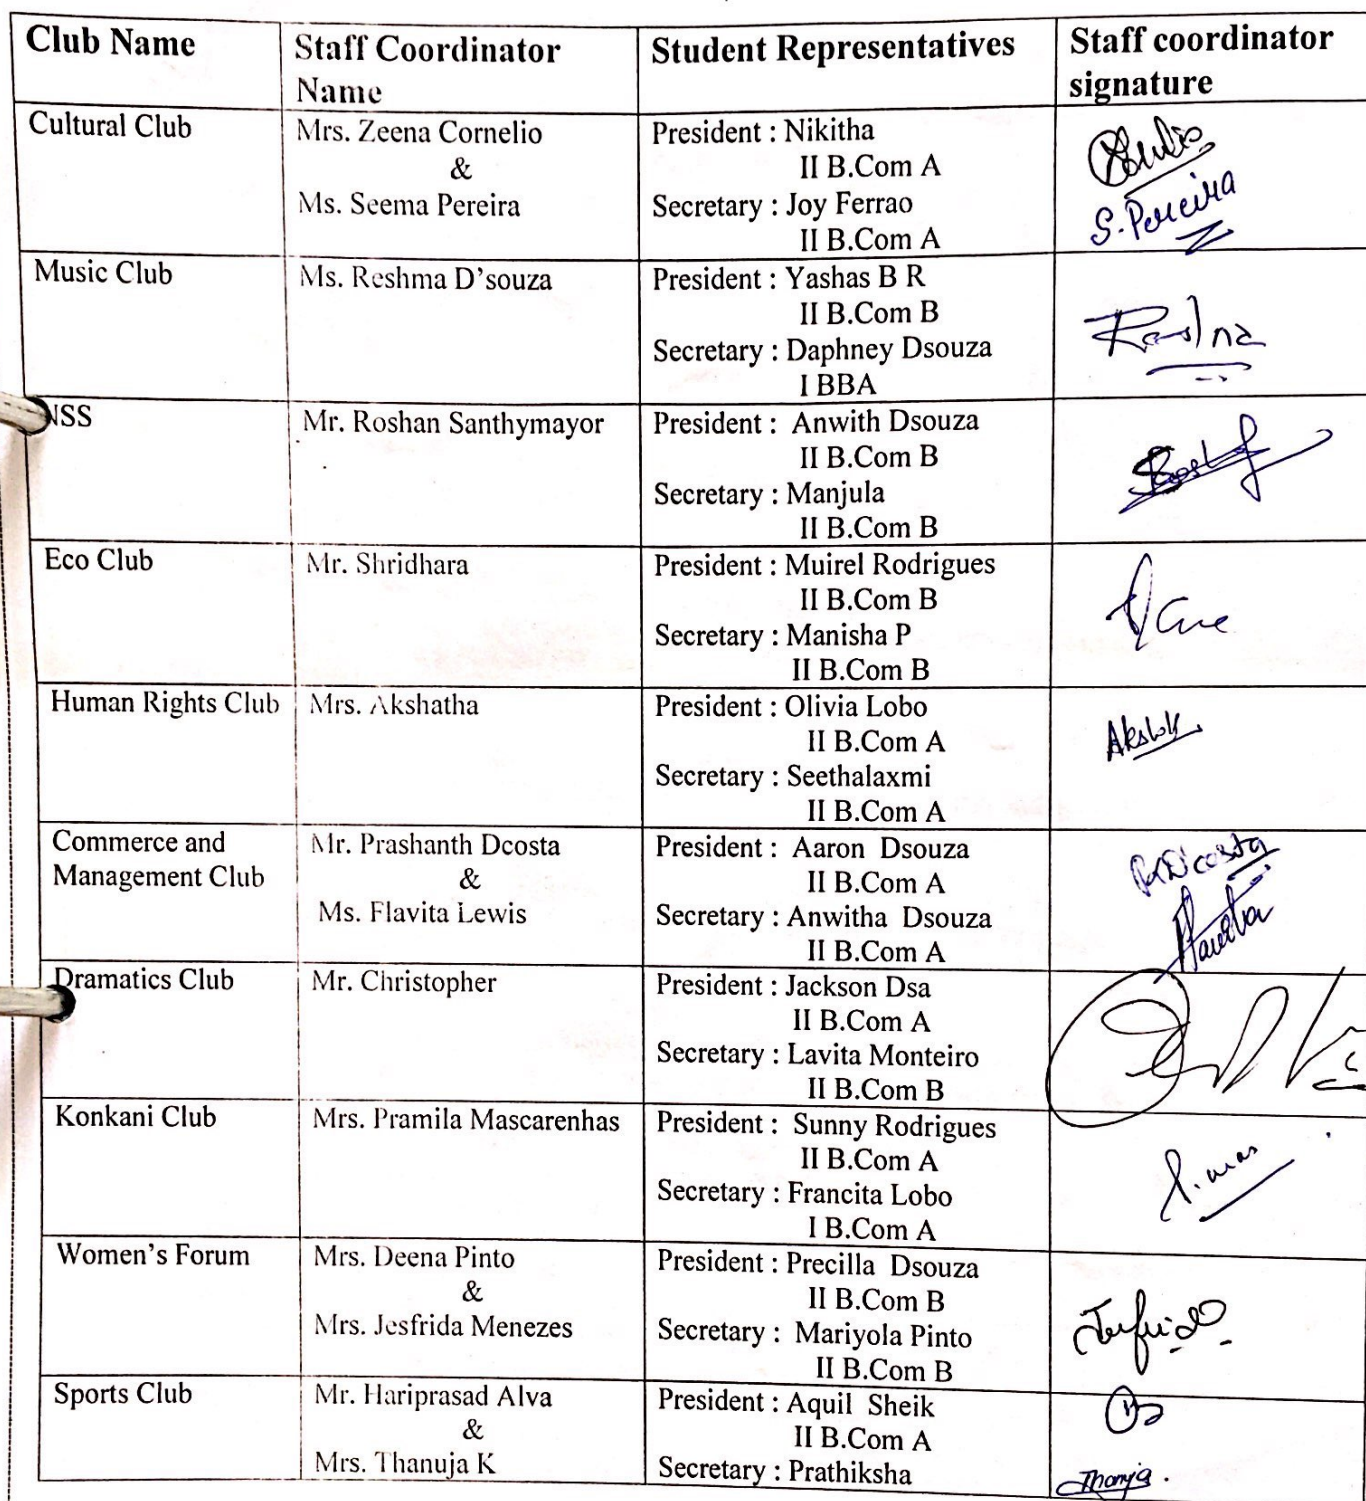 Club Name
Staff Coordinator
Name
Student Representatives
Staff coordinator
signature
Cultural Club
Mrs. Zeena Cornelio
&
Ms. Seema Pereira
President : Nikitha
II B.Com A
Secretary : Joy Ferrao
II B.Com A
S. Pereira
Music Club
Ms. Reshma D'souza
President : Yashas B R
II B.Com B
Secretary : Daphney Dsouza
I BBA
NSS
Mr. Roshan Santhymayor
President : Anwith Dsouza
II B.Com B
Secretary : Manjula
II B.Com B
Eco Club
Mr. Shridhara
President : Muirel Rodrigues
II B.Com B
Secretary : Manisha P
II B.Com B
Human Rights Club
Mrs. Akshatha
President : Olivia Lobo
II B.Com A
Secretary : Seethalaxmi
II B.Com A
Commerce and
Management Club
Mr. Prashanth Dcosta
&
Ms. Flavita Lewis
President : Aaron Dsouza
II B.Com A
Secretary : Anwitha Dsouza
II B.Com A
Dramatics Club
Mr. Christopher
President : Jackson Dsa
II B.Com A
Secretary : Lavita Monteiro
II B.Com B
Konkani Club
Mrs. Pramila Mascarenhas
President : Sunny Rodrigues
II B.Com A
Secretary : Francita Lobo
I B.Com A
Women's Forum
Mrs. Deena Pinto
&
Mrs. Jesfrida Menezes
President : Precilla Dsouza
II B.Com B
Secretary : Mariyola Pinto
II B.Com B
Sports Club
Mr. Hariprasad Alva
&
Mrs. Thanuja K
President : Aquil Sheik
II B.Com A
Secretary : Prathiksha